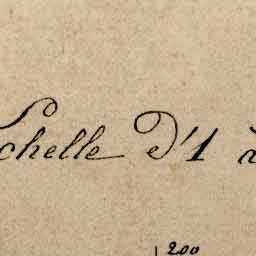 Echelle D'1 à
200